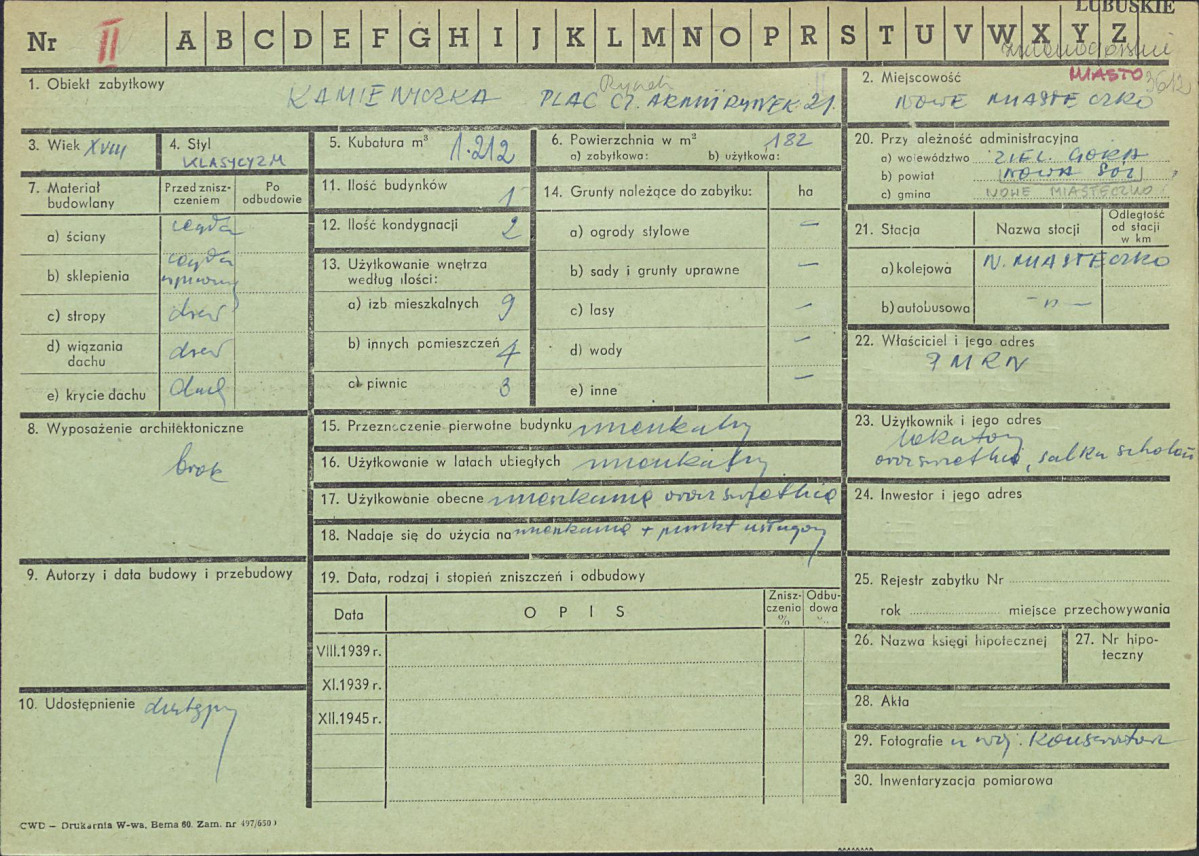 LUBUSKIE
Nr II A B C D E F G H I J K L M N O P R S T U V W X Y Z
zielonogórskie
MIASTO 3612
1. Obiekt zabytkowy
Rynek
KAMIENICZKA PLAC CZ. ARMII RYNEK 21.
2. Miejscowość
NOWE MIASTECZKO
3. Wiek XVIII
4. Styl
KLASYCYZM
5. Kubatura m³
1.212
6. Powierzchnia w m²
a) zabytkowa: b) użytkowa: 182
7. Materiał budowlany
Przed zniszczeniem
Po odbudowie
a) ściany cegła
b) sklepienia cegła
c) stropy drew
d) wiązania dachu drew
e) krycie dachu dach
8. Wyposażenie architektoniczne
brak
9. Autorzy i data budowy i przebudowy
10. Udostępnienie dostępny
11. Ilość budynków 1
12. Ilość kondygnacji 2
13. Użytkowanie wnętrza
według ilości:
a) izb mieszkalnych 9
b) innych pomieszczeń 4
c) piwnic 3
14. Grunty należące do zabytku: ha
a) ogrody stylowe —
b) sady i grunty uprawne —
c) lasy —
d) wody —
e) inne —
15. Przeznaczenie pierwotne budynku mieszkalny
16. Użytkowanie w latach ubiegłych mieszkalny
17. Użytkowanie obecne mieszkanie oraz świetlica
18. Nadaje się do użycia na mieszkanie + punkt usługowy
19. Data, rodzaj i stopień zniszczeń i odbudowy
Data
O P I S
Zniszczenia %
Odbudowa %
VIII.1939 r.
XI.1939 r.
XII.1945 r.
20. Przynależność administracyjna
a) województwo ZIEL. GÓRA
b) powiat NOWA SÓL
c) gmina NOWE MIASTECZKO
21. Stacja
Nazwa stacji
Odległość od stacji w km
a) kolejowa N. MIASTECZKO
b) autobusowa -"-
22. Właściciel i jego adres
MRN
23. Użytkownik i jego adres
lokatorzy
oraz świetlica, salka
24. Inwestor i jego adres
25. Rejestr zabytku Nr
rok miejsce przechowywania
26. Nazwa księgi hipotecznej
27. Nr hipoteczny
28. Akta
29. Fotografie u woj. Konserwatora
30. Inwentaryzacja pomiarowa
CWD — Drukarnia W-wa, Bema 60. Zam. nr 497/650